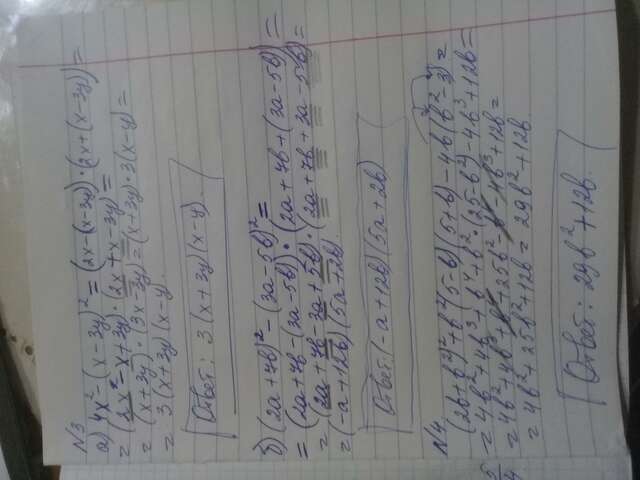 №3
а) 4x² - (x - 3y)² = (2x - (x - 3y)) · (2x + (x - 3y)) =
= (2x - x + 3y) · (2x + x - 3y) =
= (x + 3y) · (3x - 3y) = (x + 3y) · 3(x - y) =
= 3(x + 3y)(x - y).
Ответ: 3(x + 3y)(x - y).
б) (2a + 7b)² - (3a - 5b)² =
= (2a + 7b - (3a - 5b)) · (2a + 7b + (3a - 5b)) =
= (2a + 7b - 3a + 5b) · (2a + 7b + 3a - 5b) =
= (-a + 12b)(5a + 2b).
Ответ: (-a + 12b)(5a + 2b)
№4.
(2b + b²)² + b²(5 - b)(5 + b) - 4b(b² - 3) =
= 4b² + 4b³ + b⁴ + b² · (25 - b²) - 4b³ + 12b =
= 4b² + 4b³ + b⁴ + 25b² - b⁴ - 4b³ + 12b =
= 4b² + 25b² + 12b = 29b² + 12b
Ответ: 29b² + 12b.